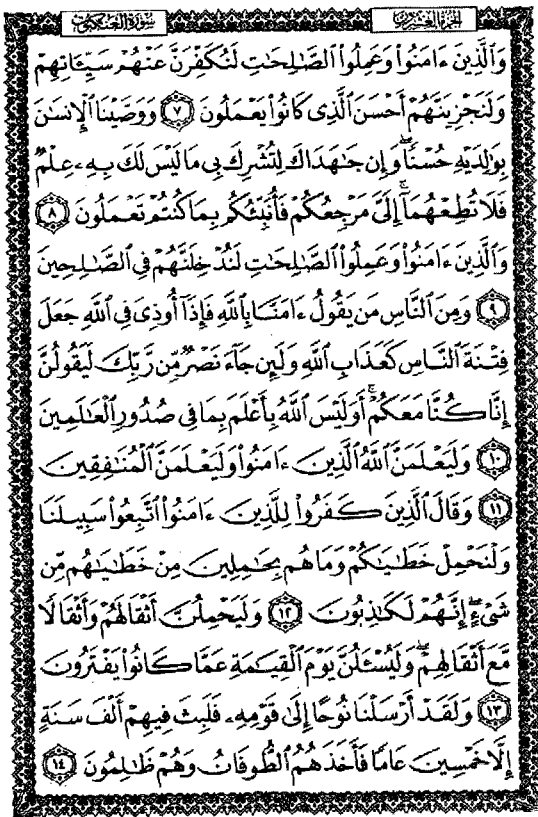 الجزء العشرون
سورة العنكبوت
وَالَّذِينَ ءَامَنُوا۟ وَعَمِلُوا۟ الصَّـٰلِحَـٰتِ لَنُكَفِّرَنَّ عَنْهُمْ سَيِّـَٔاتِهِمْ
وَلَنَجْزِيَنَّهُمْ أَحْسَنَ الَّذِى كَانُوا۟ يَعْمَلُونَ ٧ وَوَصَّيْنَا الْإِنسَـٰنَ
بِوَٰلِدَيْهِ حُسْنًا ۖ وَإِن جَـٰهَدَاكَ لِتُشْرِكَ بِى مَا لَيْسَ لَكَ بِهِۦ عِلْمٌ
فَلَا تُطِعْهُمَآ ۚ إِلَىَّ مَرْجِعُكُمْ فَأُنَبِّئُكُم بِمَا كُنتُمْ تَعْمَلُونَ ٨
وَالَّذِينَ ءَامَنُوا۟ وَعَمِلُوا۟ الصَّـٰلِحَـٰتِ لَنُدْخِلَنَّهُمْ فِى الصَّـٰلِحِينَ
٩ وَمِنَ النَّاسِ مَن يَقُولُ ءَامَنَّا بِاللَّهِ فَإِذَآ أُوذِىَ فِى اللَّهِ جَعَلَ
فِتْنَةَ النَّاسِ كَعَذَابِ اللَّهِ وَلَئِن جَآءَ نَصْرٌ مِّن رَّبِّكَ لَيَقُولُنَّ
إِنَّا كُنَّا مَعَكُمْ ۚ أَوَلَيْسَ اللَّهُ بِأَعْلَمَ بِمَا فِى صُدُورِ الْعَـٰلَمِينَ
١٠ وَلَيَعْلَمَنَّ اللَّهُ الَّذِينَ ءَامَنُوا۟ وَلَيَعْلَمَنَّ الْمُنَـٰفِقِينَ
١١ وَقَالَ الَّذِينَ كَفَرُوا۟ لِلَّذِينَ ءَامَنُوا۟ اتَّبِعُوا۟ سَبِيلَنَا
وَلْنَحْمِلْ خَطَـٰيَـٰكُمْ وَمَا هُم بِحَـٰمِلِينَ مِنْ خَطَـٰيَـٰهُم مِّن
شَىْءٍ ۖ إِنَّهُمْ لَكَـٰذِبُونَ ١٢ وَلَيَحْمِلُنَّ أَثْقَالَهُمْ وَأَثْقَالًا
مَّعَ أَثْقَالِهِمْ ۖ وَلَيُسْـَٔلُنَّ يَوْمَ الْقِيَـٰمَةِ عَمَّا كَانُوا۟ يَفْتَرُونَ
١٣ وَلَقَدْ أَرْسَلْنَا نُوحًا إِلَىٰ قَوْمِهِۦ فَلَبِثَ فِيهِمْ أَلْفَ سَنَةٍ
إِلَّا خَمْسِينَ عَامًا فَأَخَذَهُمُ الطُّوفَانُ وَهُمْ ظَـٰلِمُونَ ١٤